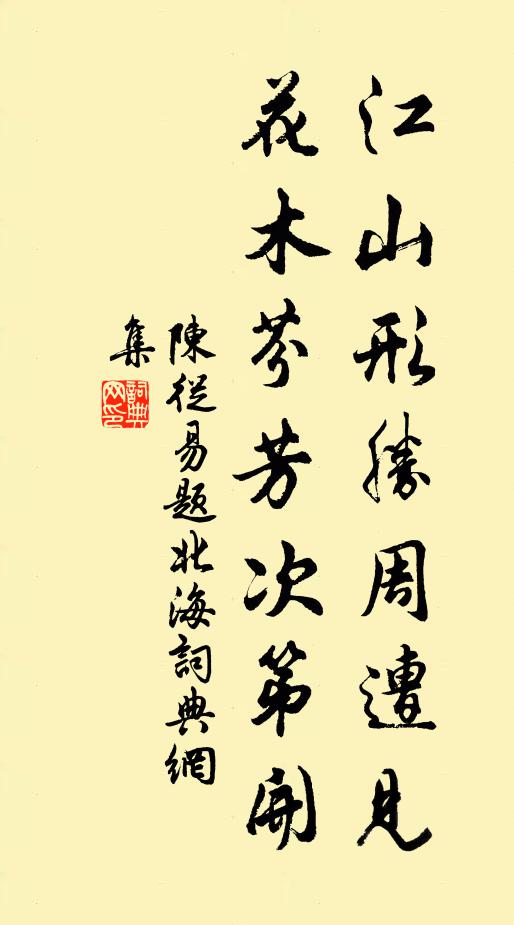 江山形勝周遭見
花木芬芳次第開
陳從易題北海詞典網
集
詞典網印